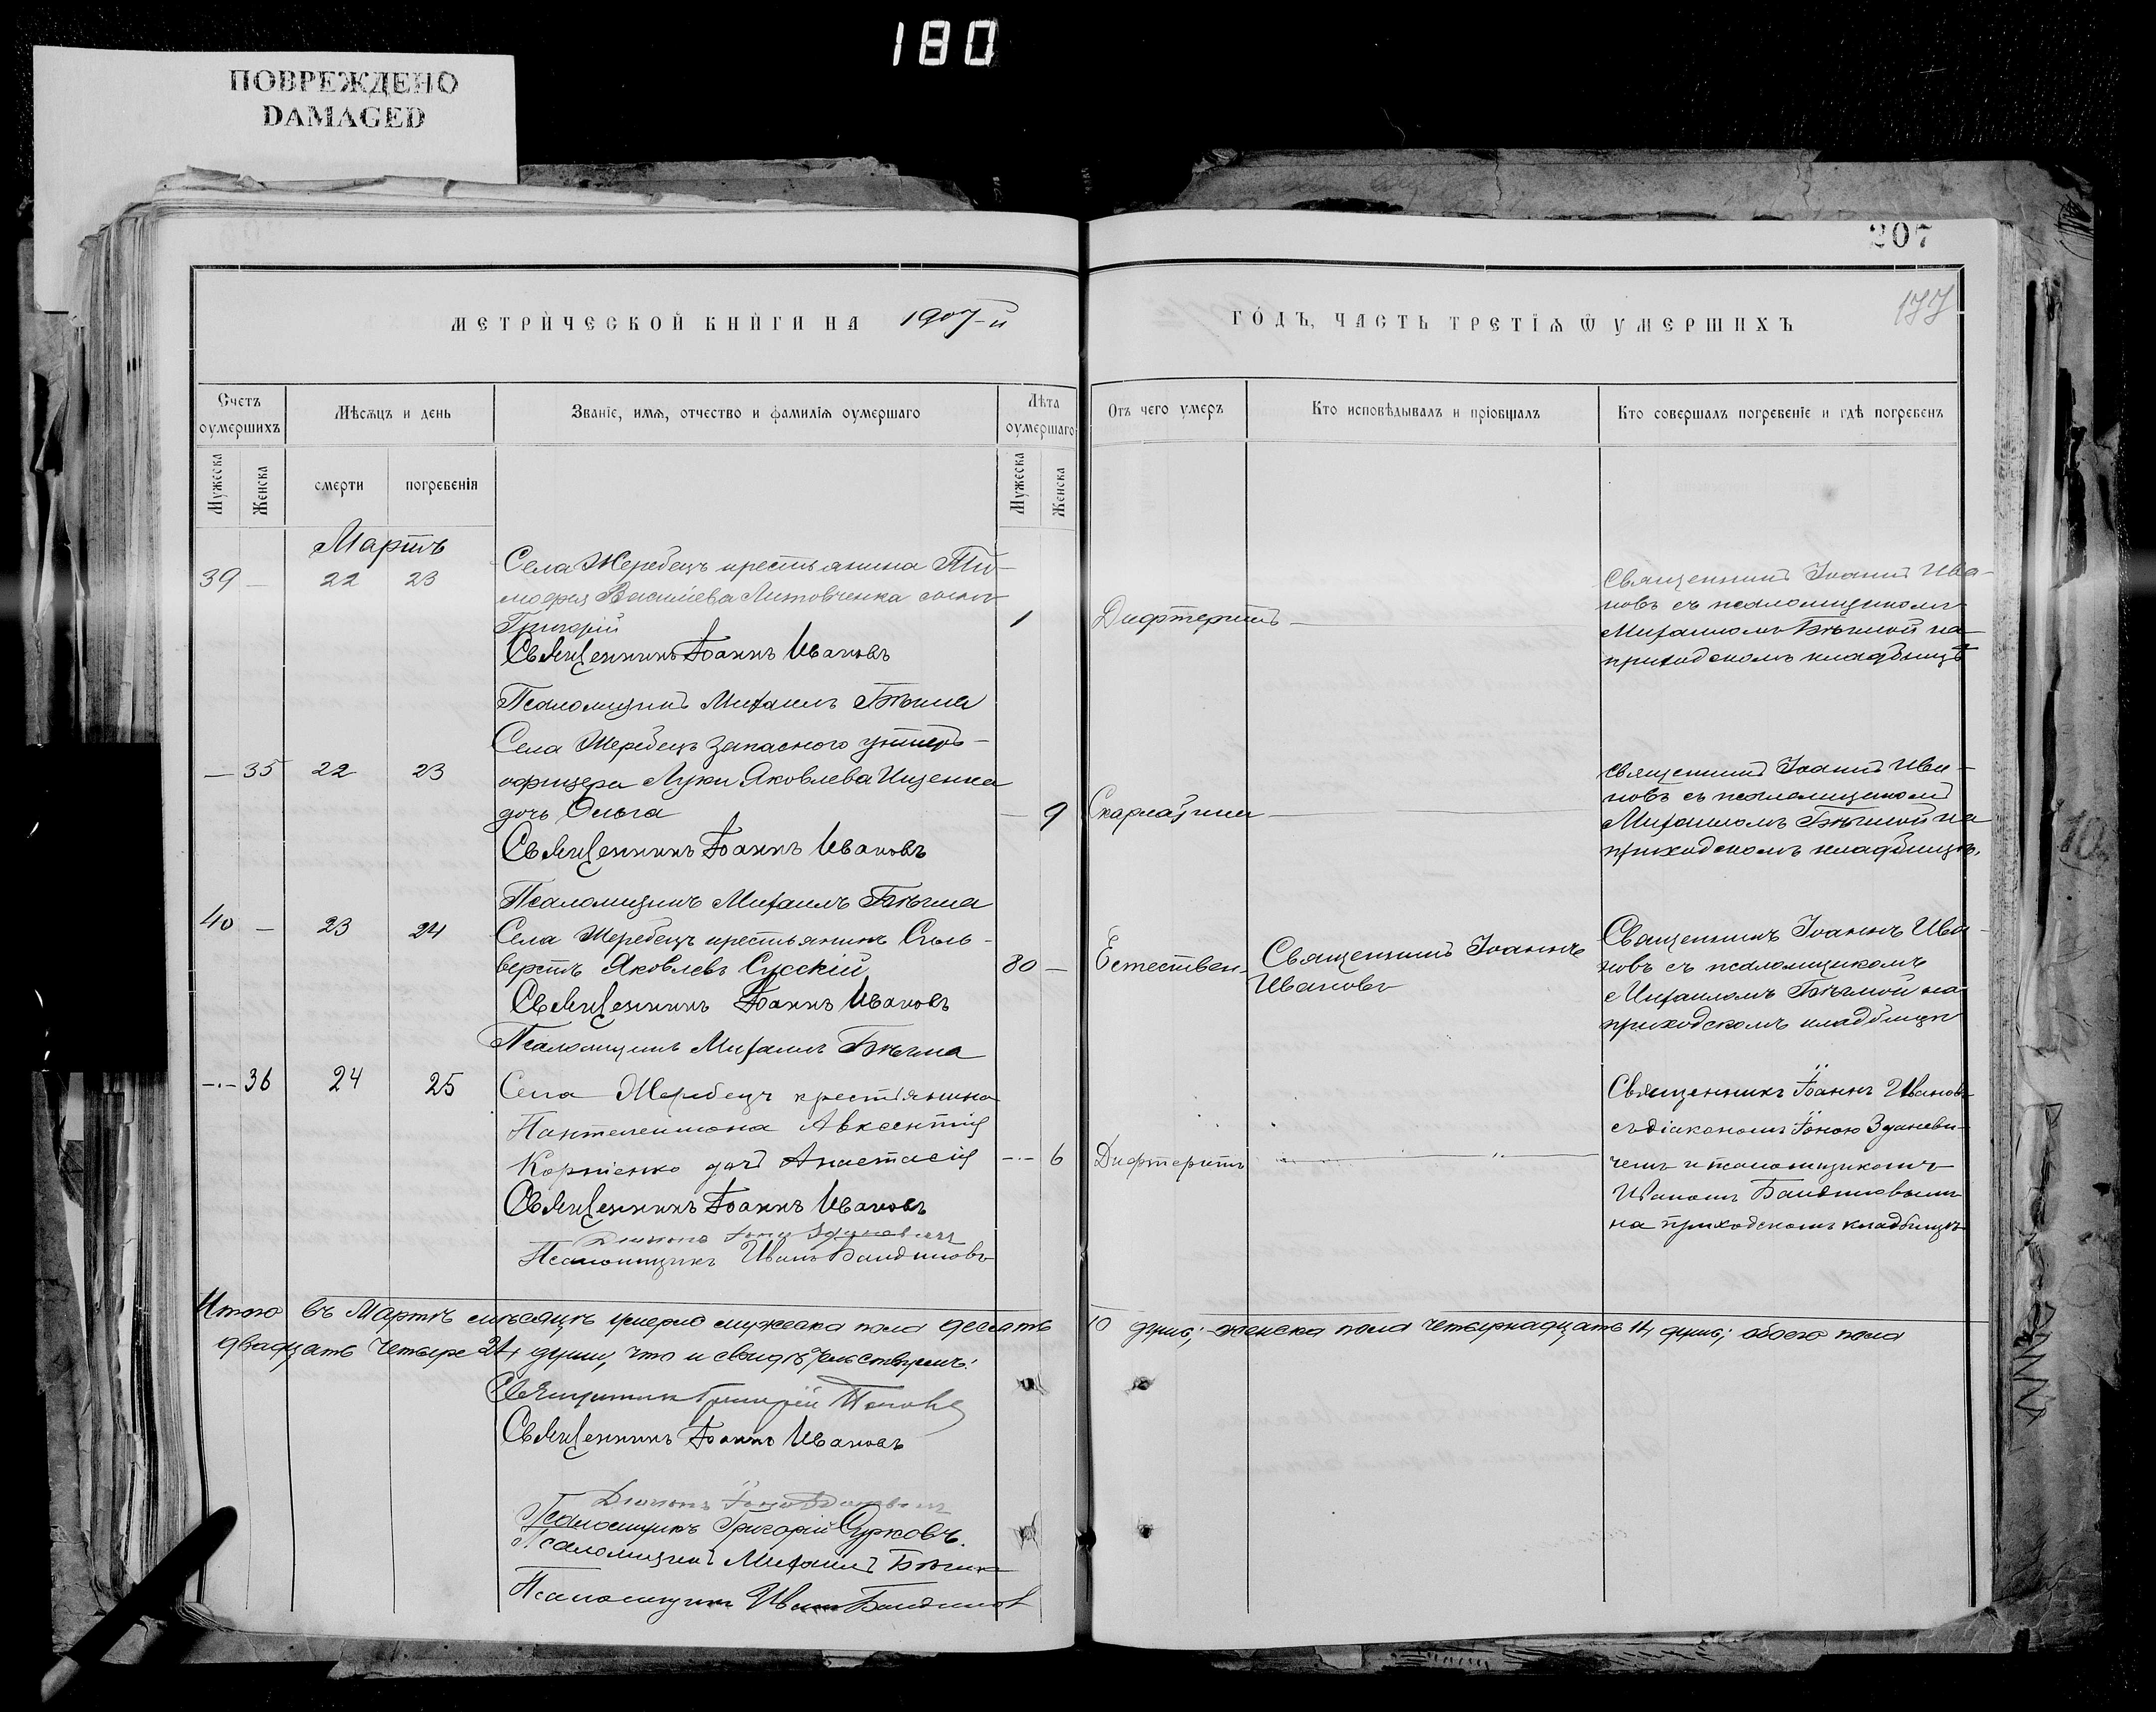 180
ПОВРЕЖДЕНО
DAMAGED
207
177
МЕТРИЧЕСКОЙ КНИГИ НА 1907-й
ГОДЪ, ЧАСТЬ ТРЕТІѦ Ѿ УМЕРШИХЪ
Счетъ оумершихъ
Мѣсѧцъ и день
Званіе, имѧ, отчество и фамиліѧ оумершаго
Лѣта оумершаго
Отъ чего умеръ
Кто исповѣдывалъ и пріобщалъ
Кто совершалъ погребеніе и гдѣ погребенъ
Мужеска
Женска
смерти
погребенія
Мужеска
Женска
Мартъ
39 — 22 23
Села Жеребецъ крестьянина Ти-
мофея Васильева Литовченка сынъ
Григорій
1
Дифтеритъ
Священникъ Іоаннъ Ива-
новъ съ псаломщикомъ
Михаиломъ Бѣгмой на
приходскомъ кладбищѣ
Священникъ Іоаннъ Ивановъ
Псаломщикъ Михаилъ Бѣгма
— 35 22 23
Села Жеребецъ запаснаго унтеръ-
офицера Луки Яковлева Ищенка
дочь Ольга
— 9
Скарлатина
Священникъ Іоаннъ Ива-
новъ съ псаломщикомъ
Михаиломъ Бѣгмой на
приходскомъ кладбищѣ.
Священникъ Іоаннъ Ивановъ
Псаломщикъ Михаилъ Бѣгма
40 — 23 24
Села Жеребецъ крестьянинъ Силь-
верстъ Яковлевъ Сусскій
80 —
Естествен.
Священникъ Іоаннъ
Ивановъ
Священникъ Іоаннъ Ива-
новъ съ псаломщикомъ
Михаиломъ Бѣгмой на
приходскомъ кладбищѣ
Священникъ Іоаннъ Ивановъ
Псаломщикъ Михаилъ Бѣгма
-.- 36 24 25
Села Жеребецъ крестьянина
Пантелеимона Авксентія
Корніенко дочь Анастасія
-.- 6
Дифтеритъ
Священникъ Іоаннъ Ивановъ
съ діакономъ Іоною Зданеви-
чемъ и псаломщикомъ
Иваномъ Бандиновымъ
на приходскомъ кладбищѣ
Священникъ Іоаннъ Ивановъ
Діаконъ Іона Здановичъ
Псаломщикъ Иванъ Бандиновъ
Итого въ Мартѣ мѣсяцѣ умерло мужеска пола десять 10 душъ; женска пола четырнадцать 14 душъ; обоего пола
двадцать четыре 24 души, что и свидѣтельствуемъ:
Священникъ Григорій Поповъ
Священникъ Іоаннъ Ивановъ
Діаконъ Іона
Псаломщикъ Григорій Сурковъ.
Псаломщикъ Михаилъ Бѣгма
Псаломщикъ Иванъ Бандиновъ